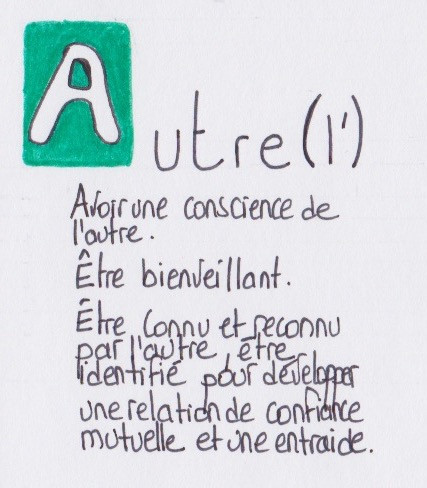 Autre (l')
Avoir une conscience de
l'autre.
Être bienveillant.
Être connu et reconnu
par l'autre, être
identifié pour développer
une relation de confiance
mutuelle et une entraide.